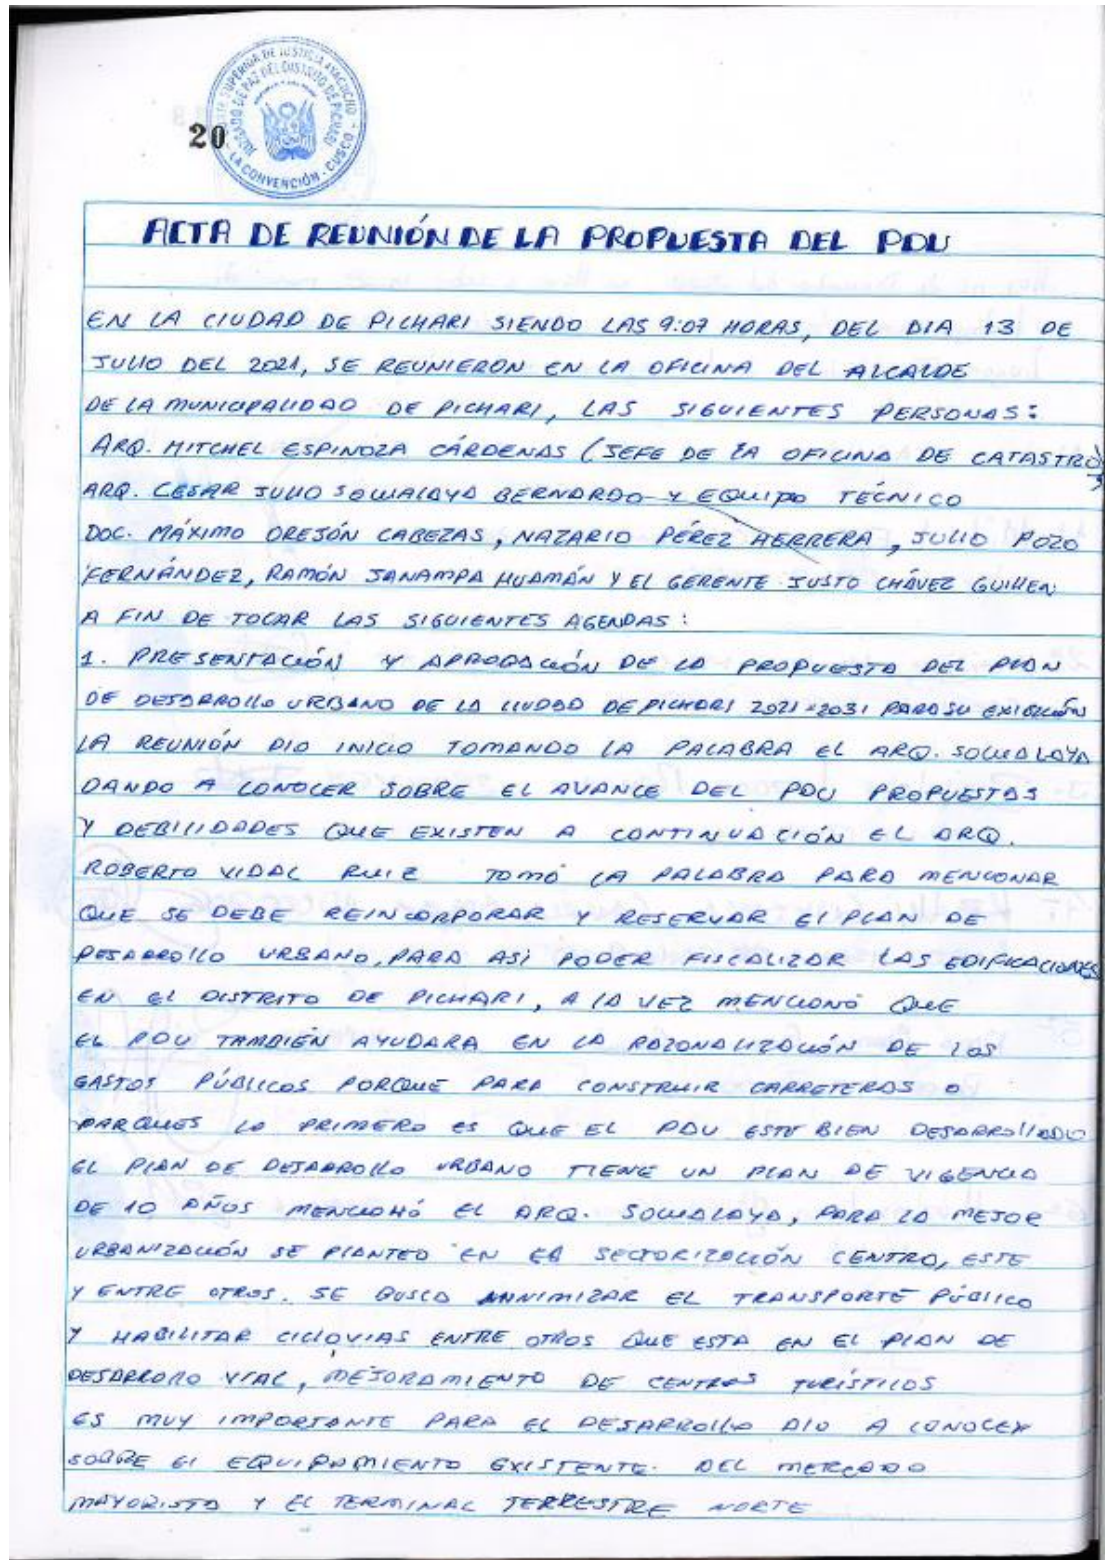 CORTE SUPERIOR DE JUSTICIA AYACUCHO
JUZGADO DE PAZ DEL DISTRITO DE PICHARI
LA CONVENCIÓN - CUSCO
20
ACTA DE REUNIÓN DE LA PROPUESTA DEL PDU
EN LA CIUDAD DE PICHARI SIENDO LAS 9:07 HORAS, DEL DIA 13 DE
JULIO DEL 2021, SE REUNIERON EN LA OFICINA DEL ALCALDE
DE LA MUNICIPALIDAD DE PICHARI, LAS SIGUIENTES PERSONAS:
ARQ. MITCHEL ESPINOZA CÁRDENAS (JEFE DE LA OFICINA DE CATASTRO)
ARQ. CESAR JULIO SOLUALAYA BERNARDO Y EQUIPO TÉCNICO
DOC. MÁXIMO OREJÓN CABEZAS, NAZARIO PÉREZ HERRERA, JULIO POZO
FERNÁNDEZ, RAMÓN JANAMPA HUAMÁN Y EL GERENTE JUSTO CHÁVEZ GUILLEN
A FIN DE TOCAR LAS SIGUIENTES AGENDAS:
1. PRESENTACIÓN Y APROBACIÓN DE LA PROPUESTA DEL PLAN
DE DESARROLLO URBANO DE LA CIUDAD DE PICHARI 2021-2031 PARA SU EXIBICIÓN
LA REUNIÓN DIO INICIO TOMANDO LA PALABRA EL ARQ. SOLUALAYA
DANDO A CONOCER SOBRE EL AVANCE DEL PDU PROPUESTAS
Y DEBILIDADES QUE EXISTEN A CONTINUACIÓN EL ARQ.
ROBERTO VIDAL RUIZ TOMÓ LA PALABRA PARA MENCIONAR
QUE SE DEBE REINCORPORAR Y RESERVAR El PLAN DE
DESARROLLO URBANO, PARA ASÍ PODER FISCALIZAR LAS EDIFICACIONES
EN EL DISTRITO DE PICHARI, A LA VEZ MENCIONÓ QUE
EL PDU TAMBIÉN AYUDARA EN LA RAZONALIZACIÓN DE LOS
GASTOS PÚBLICOS PORQUE PARA CONSTRUIR CARRETERAS O
PARQUES LO PRIMERO ES QUE EL PDU ESTE BIEN DESARROLLADO
EL PLAN DE DESARROLLO URBANO TIENE UN PLAN DE VIGENCIA
DE 10 AÑOS MENCIONÓ EL ARQ. SOLUALAYA, PARA LA MEJOR
URBANIZACIÓN SE PLANTEO EN LA SECTORIZACIÓN CENTRO, ESTE
Y ENTRE OTROS. SE BUSCA MINIMIZAR EL TRANSPORTE PÚBLICO
Y HABILITAR CICLOVIAS ENTRE OTROS QUE ESTA EN EL PLAN DE
DESARROLLO VIAL, MEJORAMIENTO DE CENTROS TURÍSTICOS
ES MUY IMPORTANTE PARA EL DESARROLLO DIO A CONOCER
SOBRE El EQUIPAMIENTO EXISTENTE. DEL MERCADO
MAYORISTA Y EL TERMINAL TERRESTRE NORTE